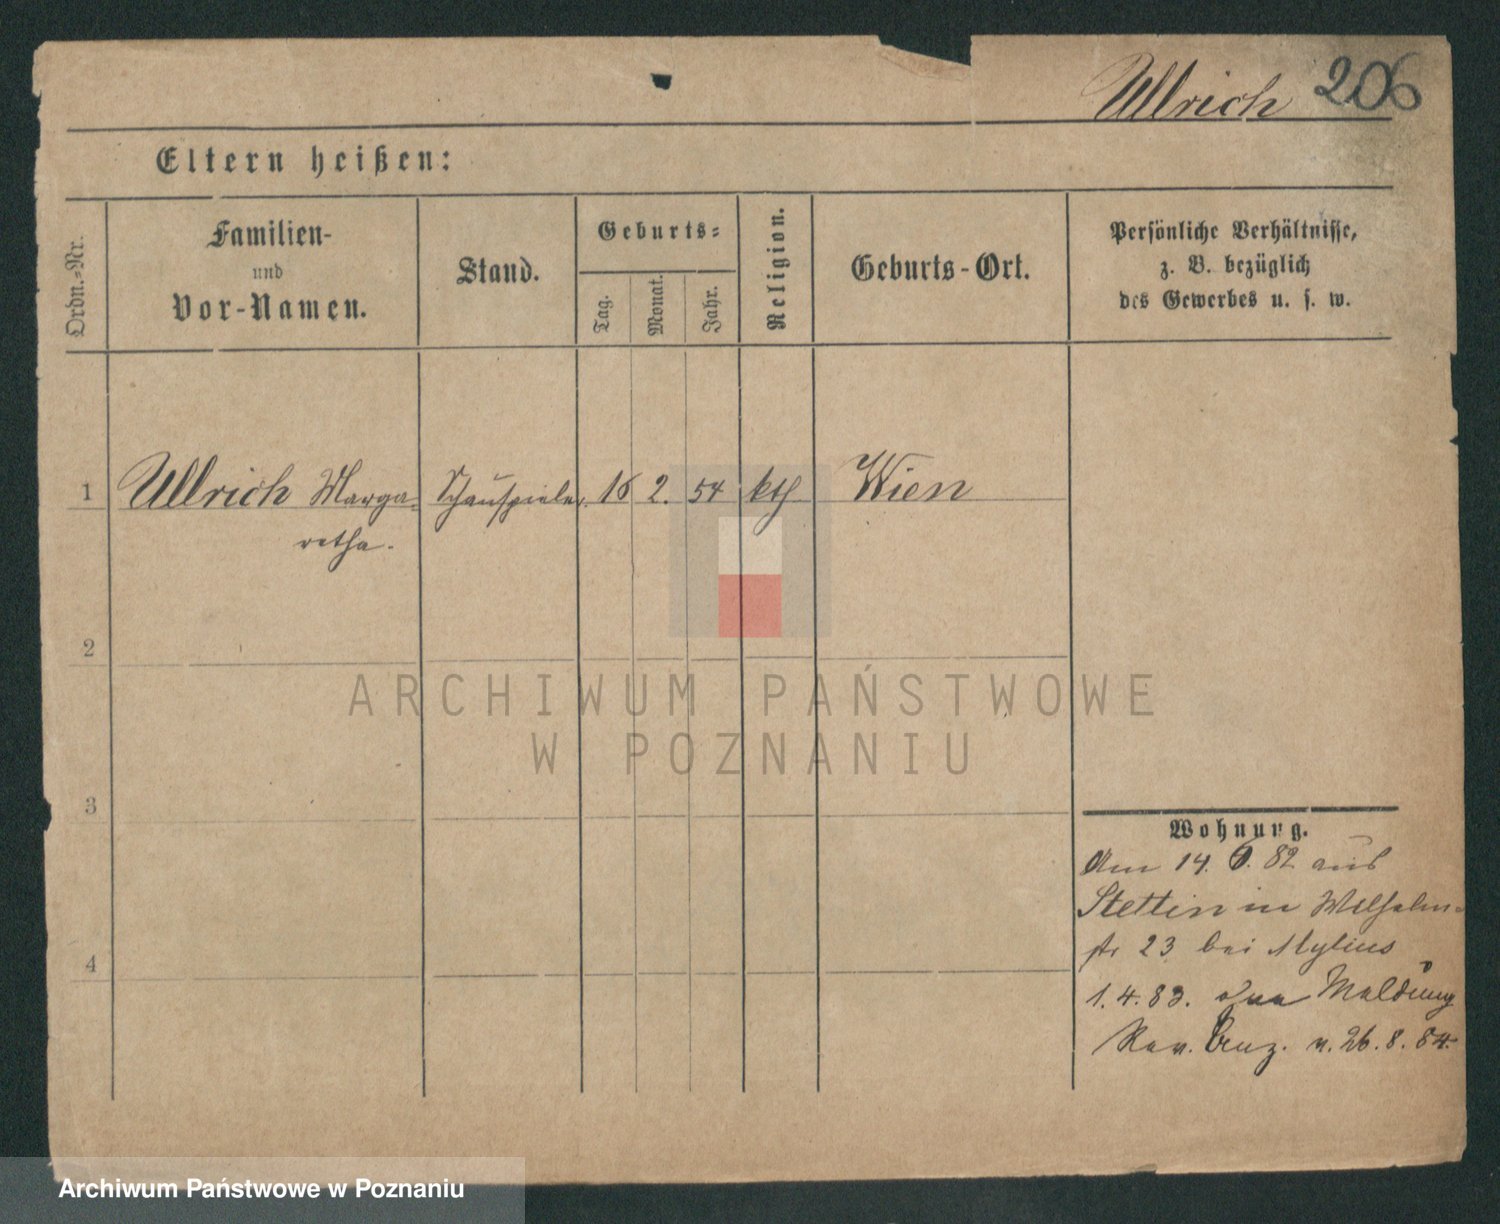 Ullrich 206
Eltern heißen:
Ordn.-Nr.
Familien-
und
Vor-Namen.
Stand.
Geburts-
Tag.
Monat.
Jahr.
Religion.
Geburts-Ort.
Persönliche Verhältnisse,
z. B. bezüglich
des Gewerbes u. s. w.
1 Ullrich Marga- Schauspieler. 16 2. 54 kth Wien
retha.
2
3
4
Wohnung.
Am 14. 6. 82 aus
Stettin in Wilhelm-
str 23 bei Mylius
1. 4. 83. Meldung
Rev. Anz. v. 26. 8. 84.
ARCHIWUM PAŃSTWOWE
W POZNANIU
Archiwum Państwowe w Poznaniu